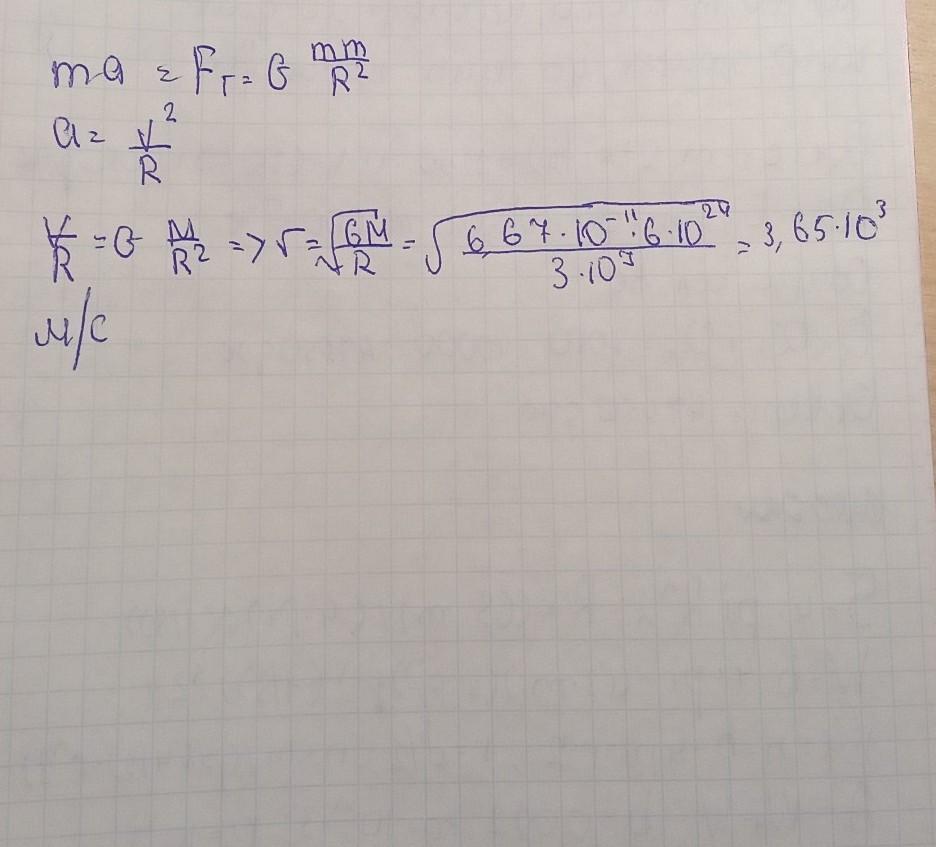 ma = F_T = G mm/R²
a = V²/R
V/R = G M/R² => V = √(GM/R) = √(6,67·10⁻¹¹·6·10²⁴/3·10⁷) = 3,65·10³
м/с